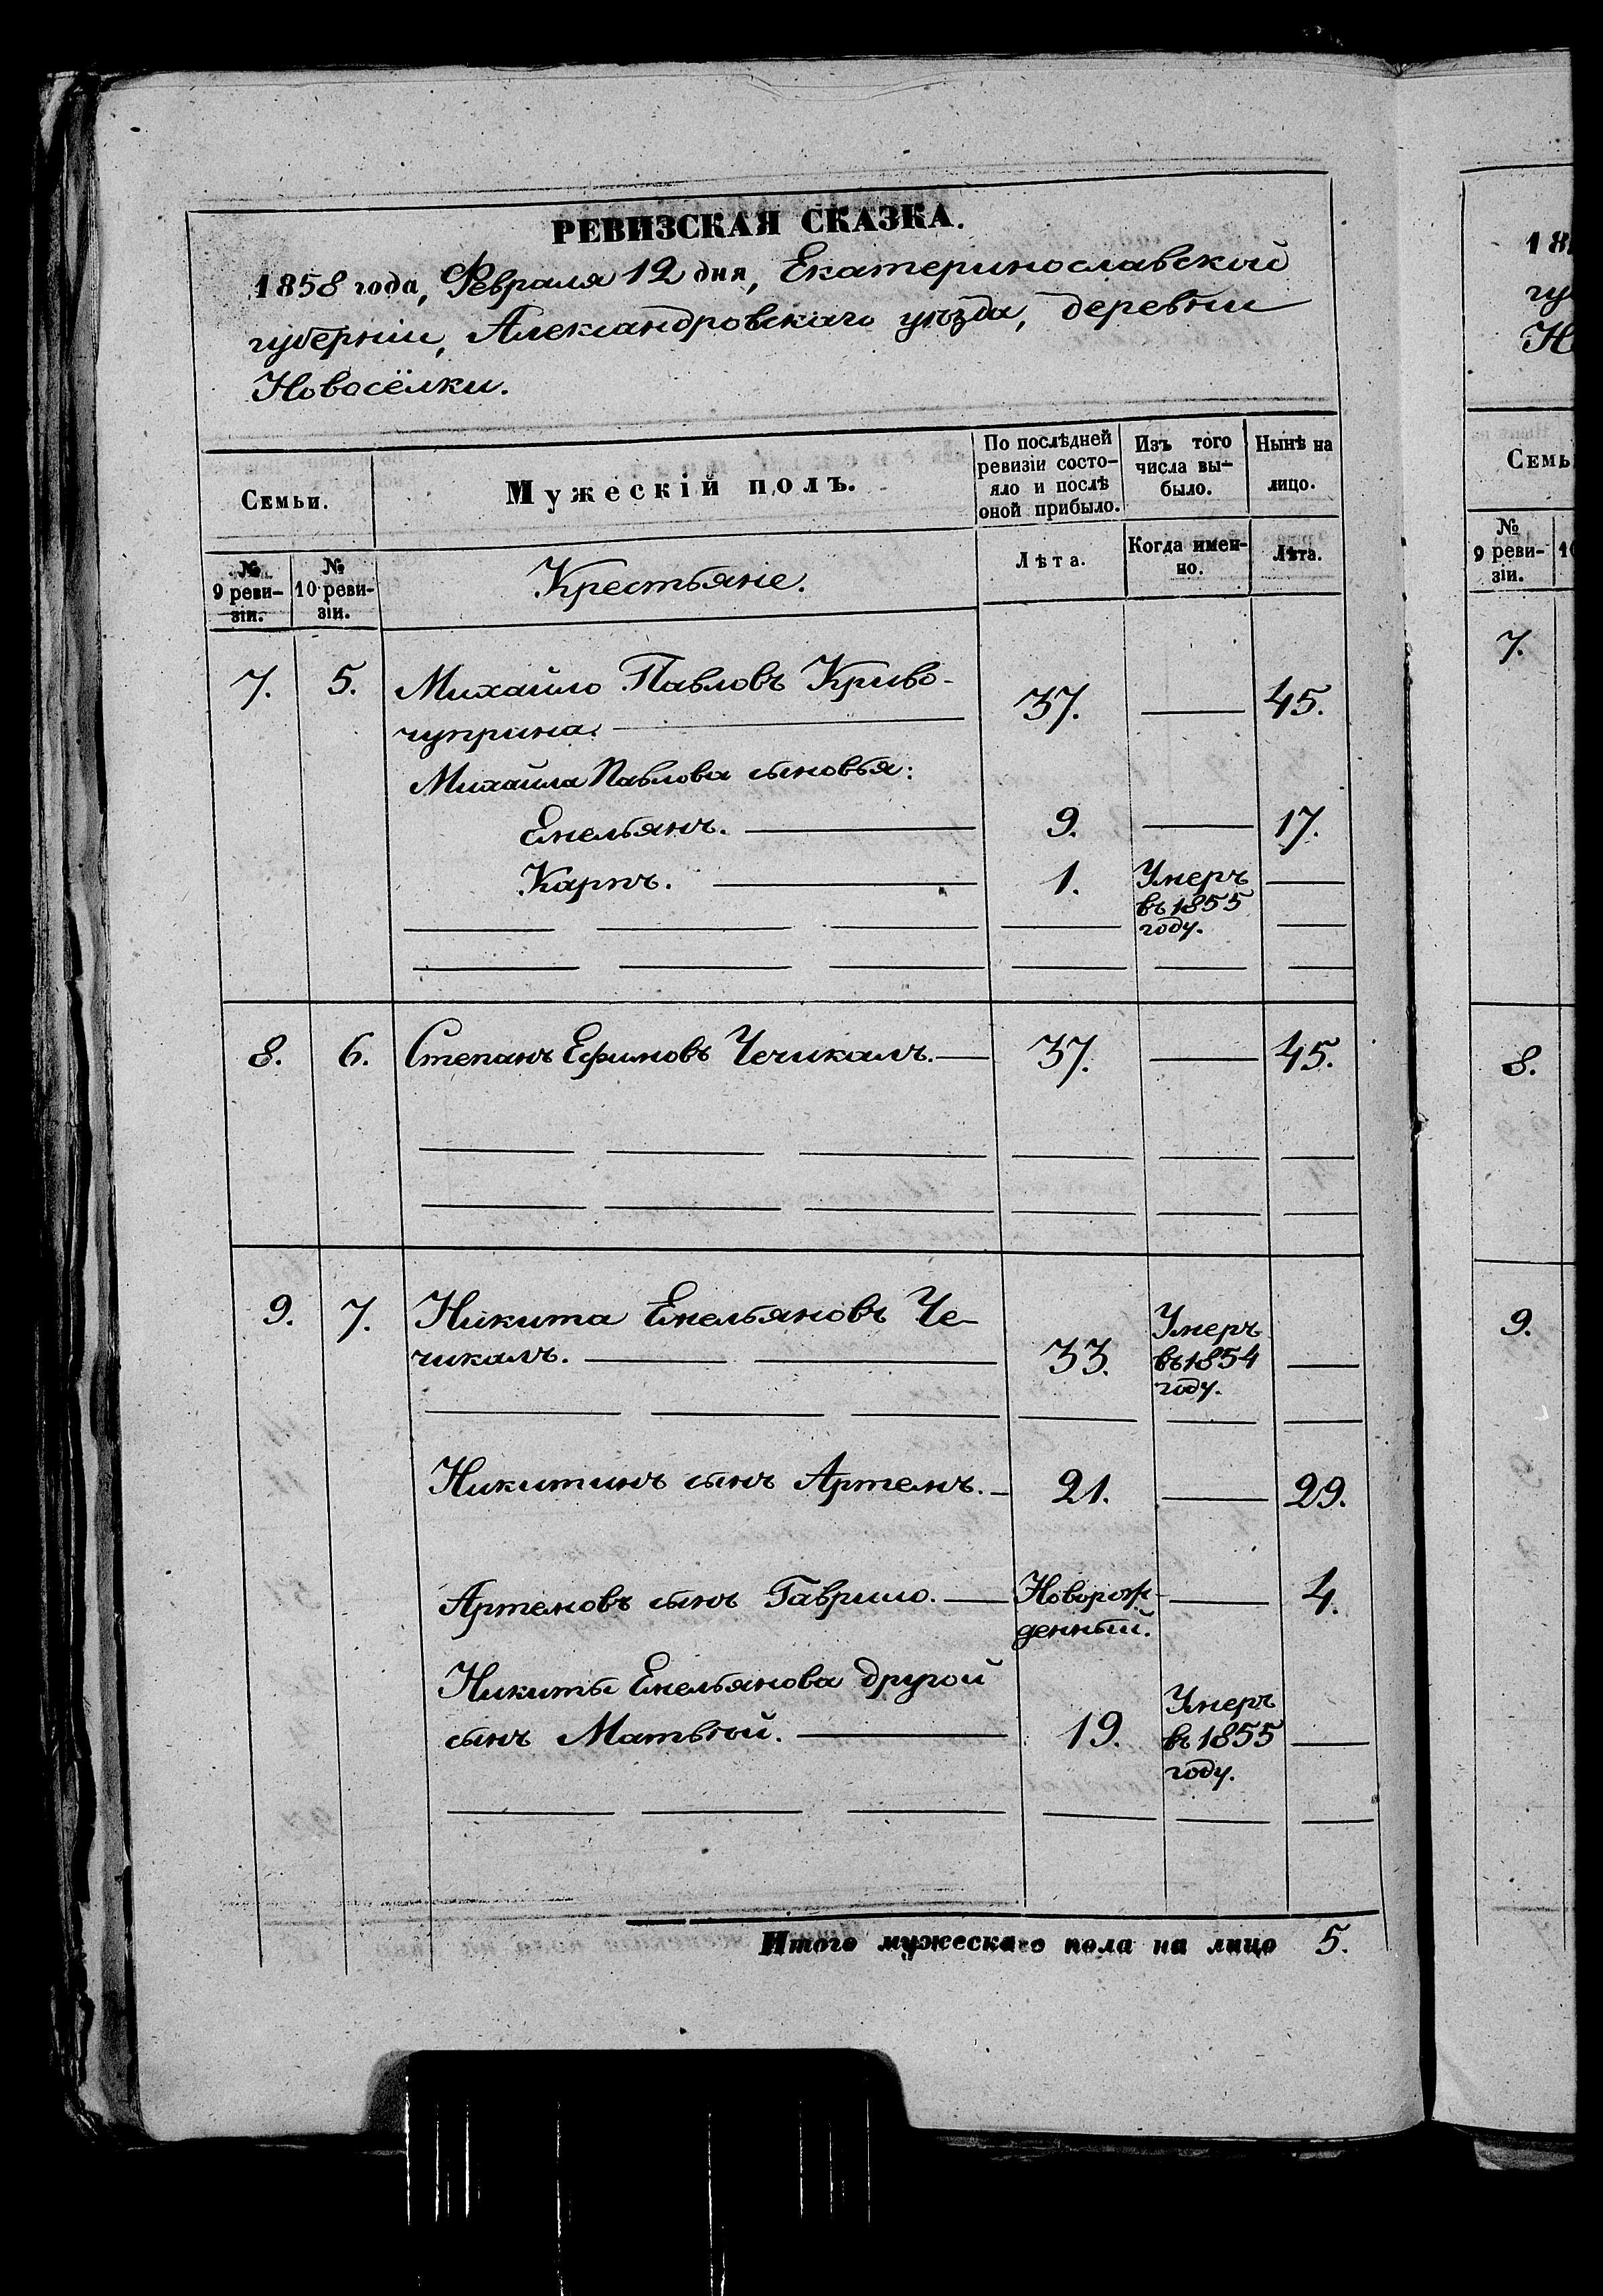 РЕВИЗСКАЯ СКАЗКА.
1858 года, Февраля 12 дня, Екатеринославской
губернiи, Александровскаго уѣзда, деревни
Новосёлки.
Семьи.
Мужескiй полъ.
По послѣдней ревизiи состо-
яло и послѣ
оной прибыло.
Изъ того
числа вы-
было.
Нынѣ на
лицо.
№
9 реви-
зiи.
№
10 реви-
зiи.
Крестьяне.
Лѣта.
Когда имен-
но.
Лѣта.
7. 5. Михайло Павловъ Криво-
чуприна. 37. 45.
Михайла Павлова сыновья:
Емельянъ. 9. 17.
Карпъ. 1. Умеръ
въ 1855
году.
8. 6. Степанъ Ефимовъ Чечикалъ. 37. 45.
9. 7. Никита Емельяновъ Че-
чикалъ. 33. Умеръ
въ 1854
году.
Никитинъ сынъ Артемъ. 21. 29.
Артемовъ сынъ Гаврило. Новорож-
денный. 4.
Никиты Емельянова другой
сынъ Матвѣй. 19. Умеръ
въ 1855
году.
Итого мужескаго пола на лицо 5.
18
гу
Но
Семь
№
9 реви-
зiи.
10
7.
8.
9.